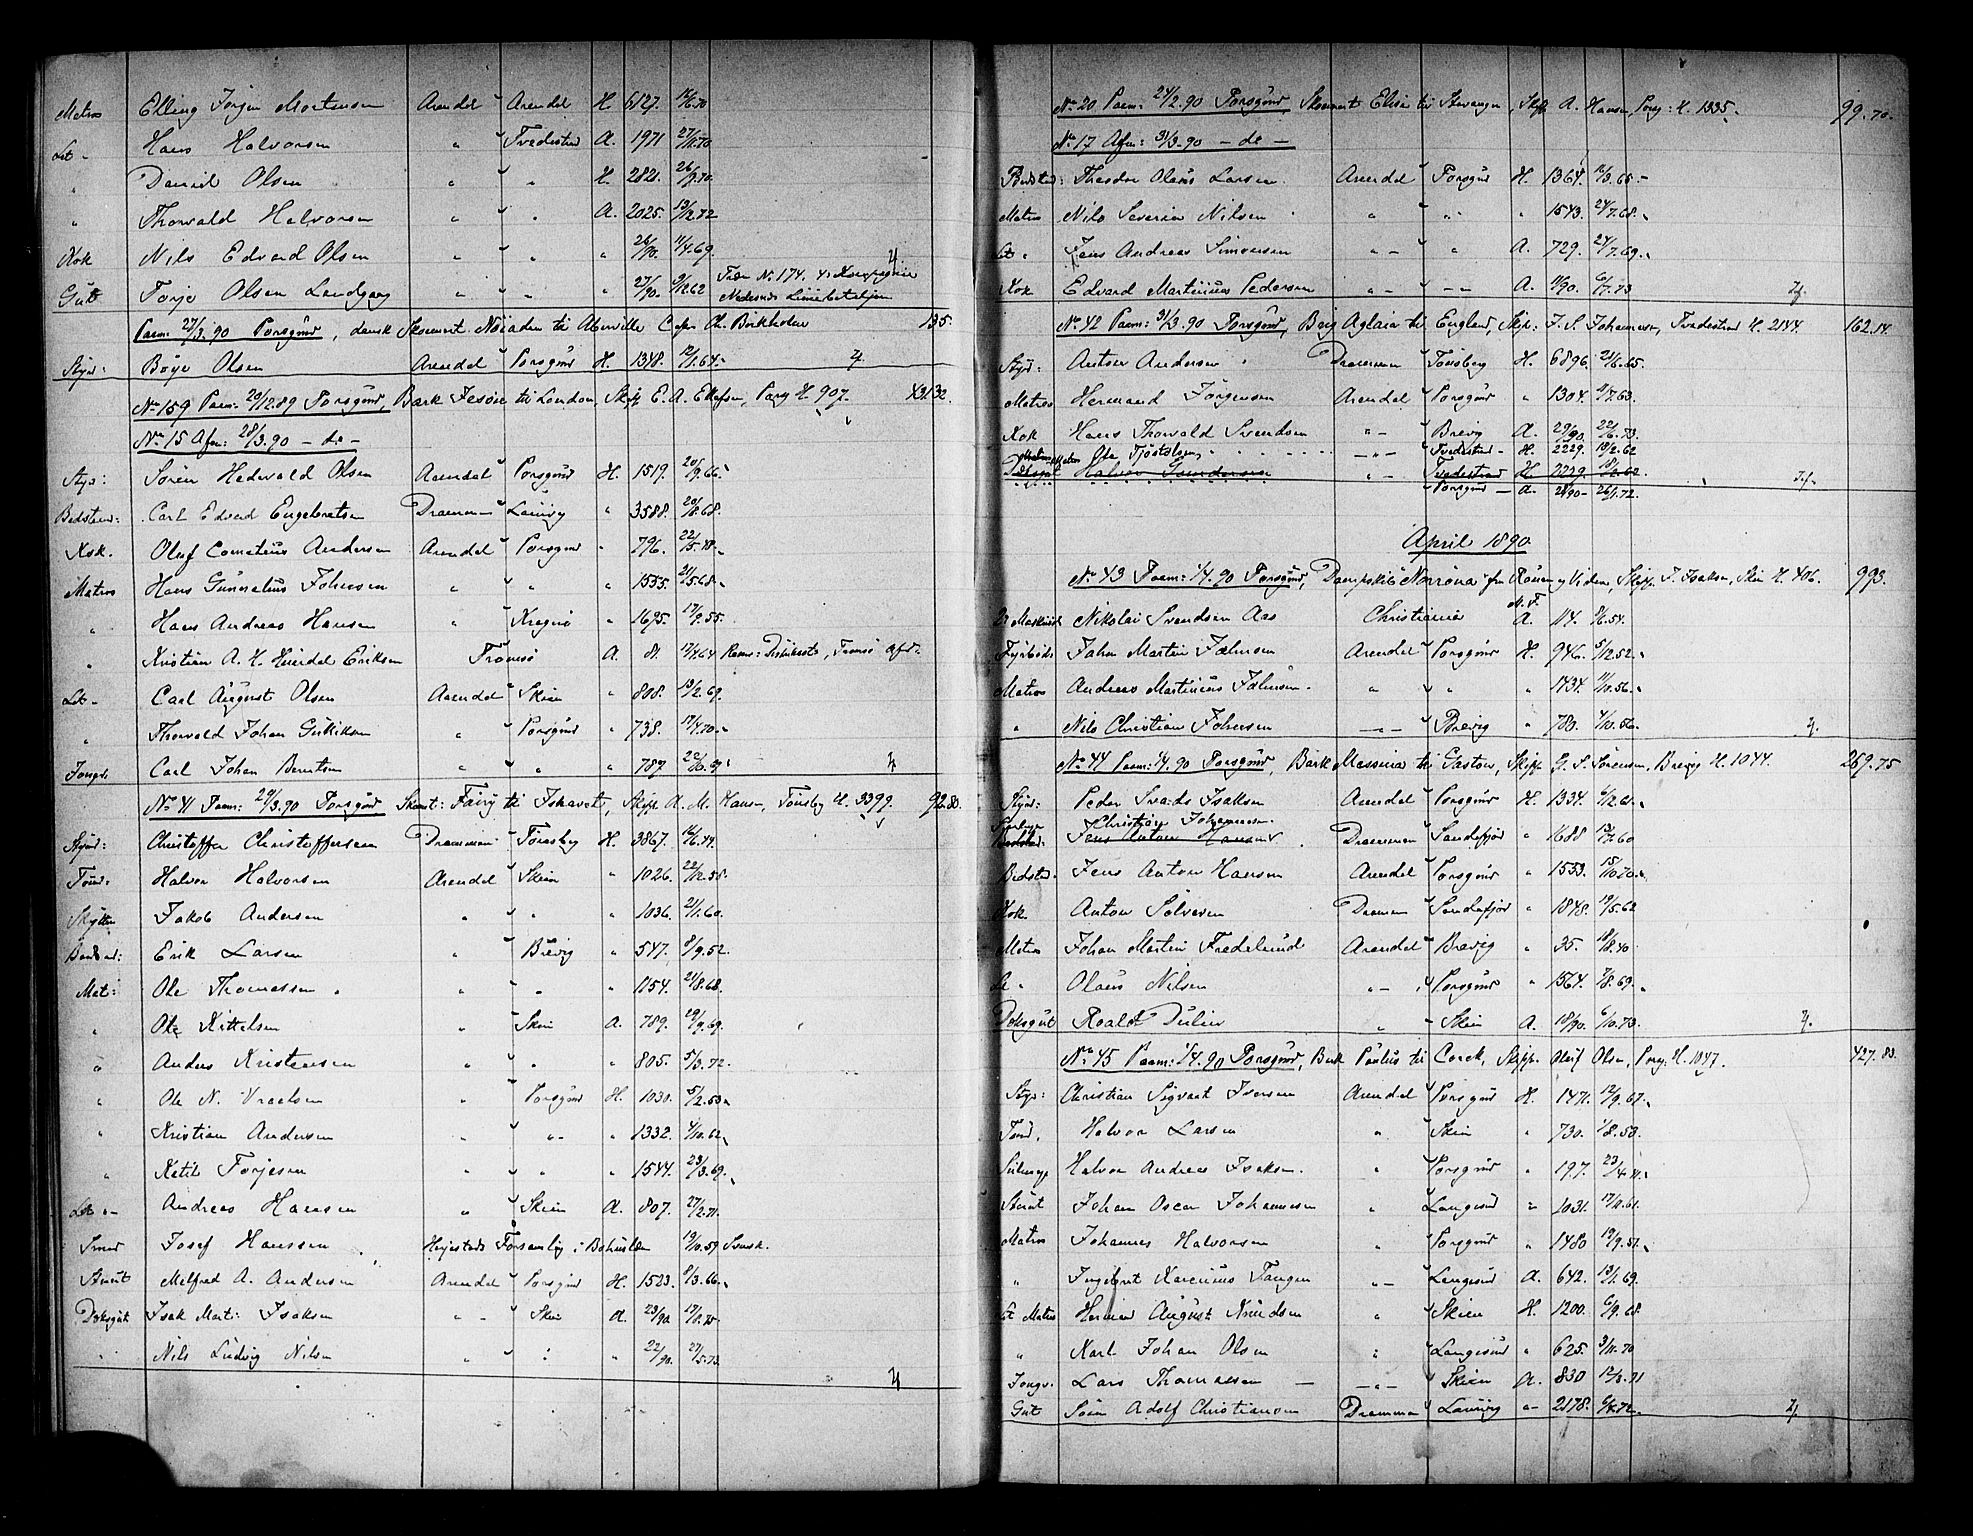 Matros Elling Jörgen Mortensen Arendal " Arendal H. 6127. 12/6.70
Let - Hans Halvorsen " " Tvedestrand A. 1971 27/11.70
" Daniel Olsen " " " H. 2821. 26/9.70.
" Thorvald Halvorsen " " " A. 2025. 13/12.72
Kok Nils Edvard Olsen " " " " 26/90. 11/4.69.
Gut Torje Olsen Lundgaard " " " " 27/90. 9/12.62 No. 174. 4de Kompagnie
Nedenæs Liniebataljon
Paam: 27/3.90 Porsgrund, dansk Skonnert Najaden til Aberville Capt. Ch. Birkholm 135.
Styrm: Börge Olsen Arendal " Porsgrund H. 1348. 12/1.64.
No. 159 Paam: 20/12.89 Porsgrund, Bark Jesöie til London, Skipp E. A. Ellefsen, Porsg H. 907. 431.32.
No. 15 Afm: 28/3.90 - do -
Styr: Sören Hedevald Olsen Arendal " Porsgrund H. 1519. 20/9.66.
Bedstem: Carl Edvard Engebretsen Drammen " Laurvig " 3588. 20/8.68.
Kok. Oluf Cornelius Andersen Arendal " Porsgrund " 796. 22/5.48.
Matros Hans Gunnelius Johnsen " " " " 1555. 21/5.68.
" Hans Andreas Hansen " " Kragerø " 1695. 17/9.55.
" Kristian A. H. Heirdal Eriksen Tromsø A. 81. 17/4.64 Tromsö afd.
Let - Carl August Olsen Arendal " Skien " 808. 13/2.69.
" Thorvald Johan Gulliksen " " Porsgrund " 738. 17/4.70.
Jungm: Carl Johan Berntsen " " " " 787.
No. 41 Paam: 29/3.90 Porsgrund, Skonnt: Fairy til Ishavet, Skipp A. M. Hansen, Tønsberg H. 3399. 92.80.
Styrm: Christoffer Christoffersen Drammen " Tønsberg H. 3867. 16/6.44.
Tømd: Halvor Halvorsen Arendal " Skien " 1026. 22/12.55.
Skytter Jakob Andersen " " " " 1036. 21/1.60.
Baadsmd: Erik Larsen " " Brevig " 547. 8/9.52.
Mat: Ole Thomassen " " " " 1154. 21/8.68.
" Ole Kittelsen " " Skien A. 789. 29/9.69.
" Anders Kristensen " " " " 805. 5/3.72.
" Ole N. Vraalsen " " Porsgrund H. 1030. 5/2.53.
" Kristian Andersen " " " " 1332. 4/10.62.
" Ketil Torjesen " " " " 1544. 23/3.69.
Let - Andreas Hansen " " Skien A. 807. 27/2.71.
Smed Josef Hanssen Forsamling i Bohuslän 19/10.59 Svensk.
Stuert Melfred A. Andersen Arendal " Porsgrund H. 1523. 8/3.66.
Deksgut Isak Mart: Isaksen " " Skien A. 23/90. 17/8.75.
" Nils Ludvig Nilsen " " " " 22/90. 27/5.73.
No. 20 Paam: 24/2.90 Porsgrund Skonnert Elise til Stavanger, Skp A. Hansen, Porsg: H. 1335. 99.70.
No. 17 Afm: 31/3.90 - do -
Bedstm: Theodor Olaus Larsen Arendal " Porsgrund H. 1364. 12/3.65.
Matros Nils Severin Nilsen " " " " 1543. 24/7.68.
Let " Jens Andreas Simonsen " " " A. 729. 24/7.69.
Kok Edvard Martinius Pedersen " " " A. 11/90. 6/7.73
No. 42 Paam: 31/3.90 Porsgrund, Brig Aglaia til England, Skp: J. S. Johannesen, Tvedestrand H. 2144. 162.14.
Styr: Anton Andersen Drammen " Tønsberg H. 6896. 21/6.65.
Matros Hermand Jörgensen Arendal " Porsgrund " 1304. 11/7.63.
Kok Hans Thorvald Svendsen " " Brevig A. 29/90. 22/6.73.
Matros Ole Tjöstolsen " " Tvedestrand - H. 2229. 18/2.62
Halvor Gundersen " " Tvedestrand H. 2229. 18/2.62
Porsgrund - A. 28/90 - 26/1.72.
April 1890
No. 43 Paam: 1/4.90 Porsgrund, Dampskib Norröna fra Rouen og Viden, Skipp. J. Isaksen, Skien H. 406. 993.
2d Maskinist Nikolai Svendsen Aas Christiania M. F. A. 114. 9/6.54.
Fyrböder Johan Martin Johnsen Arendal " Porsgrund H. 946. 5/12.52.
Matros Andreas Martinius Johnsen " " " " 1434. 11/10.56.
" Nils Christian Johnsen " " Brevig " 780. 4/10.56.
No. 44 Paam: 1/4.90 Porsgrund, Bark Massina til Gaston, Skipp G. S. Sörensen, Brevig H. 1044. 269.75
Styrm: Peder Svends Isaksen Arendal " Porsgrund H. 1334. 6/12.61.
Christian Johannesen
Bedstm: Jens Anton Hansen Drammen " Sandefjord " 1688 12/7.60
Bedstm. Jens Anton Hansen Arendal " Porsgrund " 1553. 15/10.70.
Kok Anton Sölversen Drammen " Sandefjord " 1848. 19/5.62
Matros Johan Martin Fredelund Arendal " Brevig " 35. 18/8.40
Let " Olaus Nilsen " " Porsgrund " 1564. 7/8.69.
Deksgut Roald Dulin " " Skien A. 18/90. 6/10.73.
No. 45 Paam: 1/4.90 Porsgrund, Bark Paulus til Corck, Skipp. Oluf Olsen, Porsg: H. 1047. 427.83.
Styr: Christian Sigvart Iversen Arendal " Porsgrund H. 1471. 12/9.67.
Tømd. Halvor Larsen " " Skien " 730. 1/8.53.
Seilmager Halvor Andreas Isaksen. " " Porsgrund " 197. 23/4.41.
Stuert Johan Oscar Johannesen " " Langesund " 1031. 17/11.61.
Matros Johannes Halvorsen " " Porsgrund " 1480 19/9.51.
" Ingebret Marenius Tangen " " Langesund A. 642. 13/1.69.
Let Matros Herman August Knudsen " " Skien H. 1200. 6/9.68.
" Karl Johan Olsen " " Langesund " 625. 3/11.70
Jungm. Lars Thomassen - " " Skien A. 830 12/3.71
Gut Sören Adolf Christiansen Drammen " Laurvig " 2178. 6/4.72.